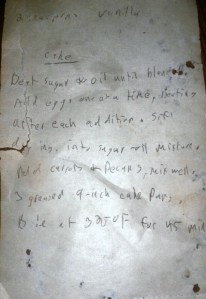 2 teaspoons vanilla
Beat sugar & oil until blended.
Add eggs one at a time, beating
after each addition. Sift
into sugar mixture.
Add carrots & Pecans, mix well.
3 greased 9-inch cake Pans.
at 325°F for 45 min